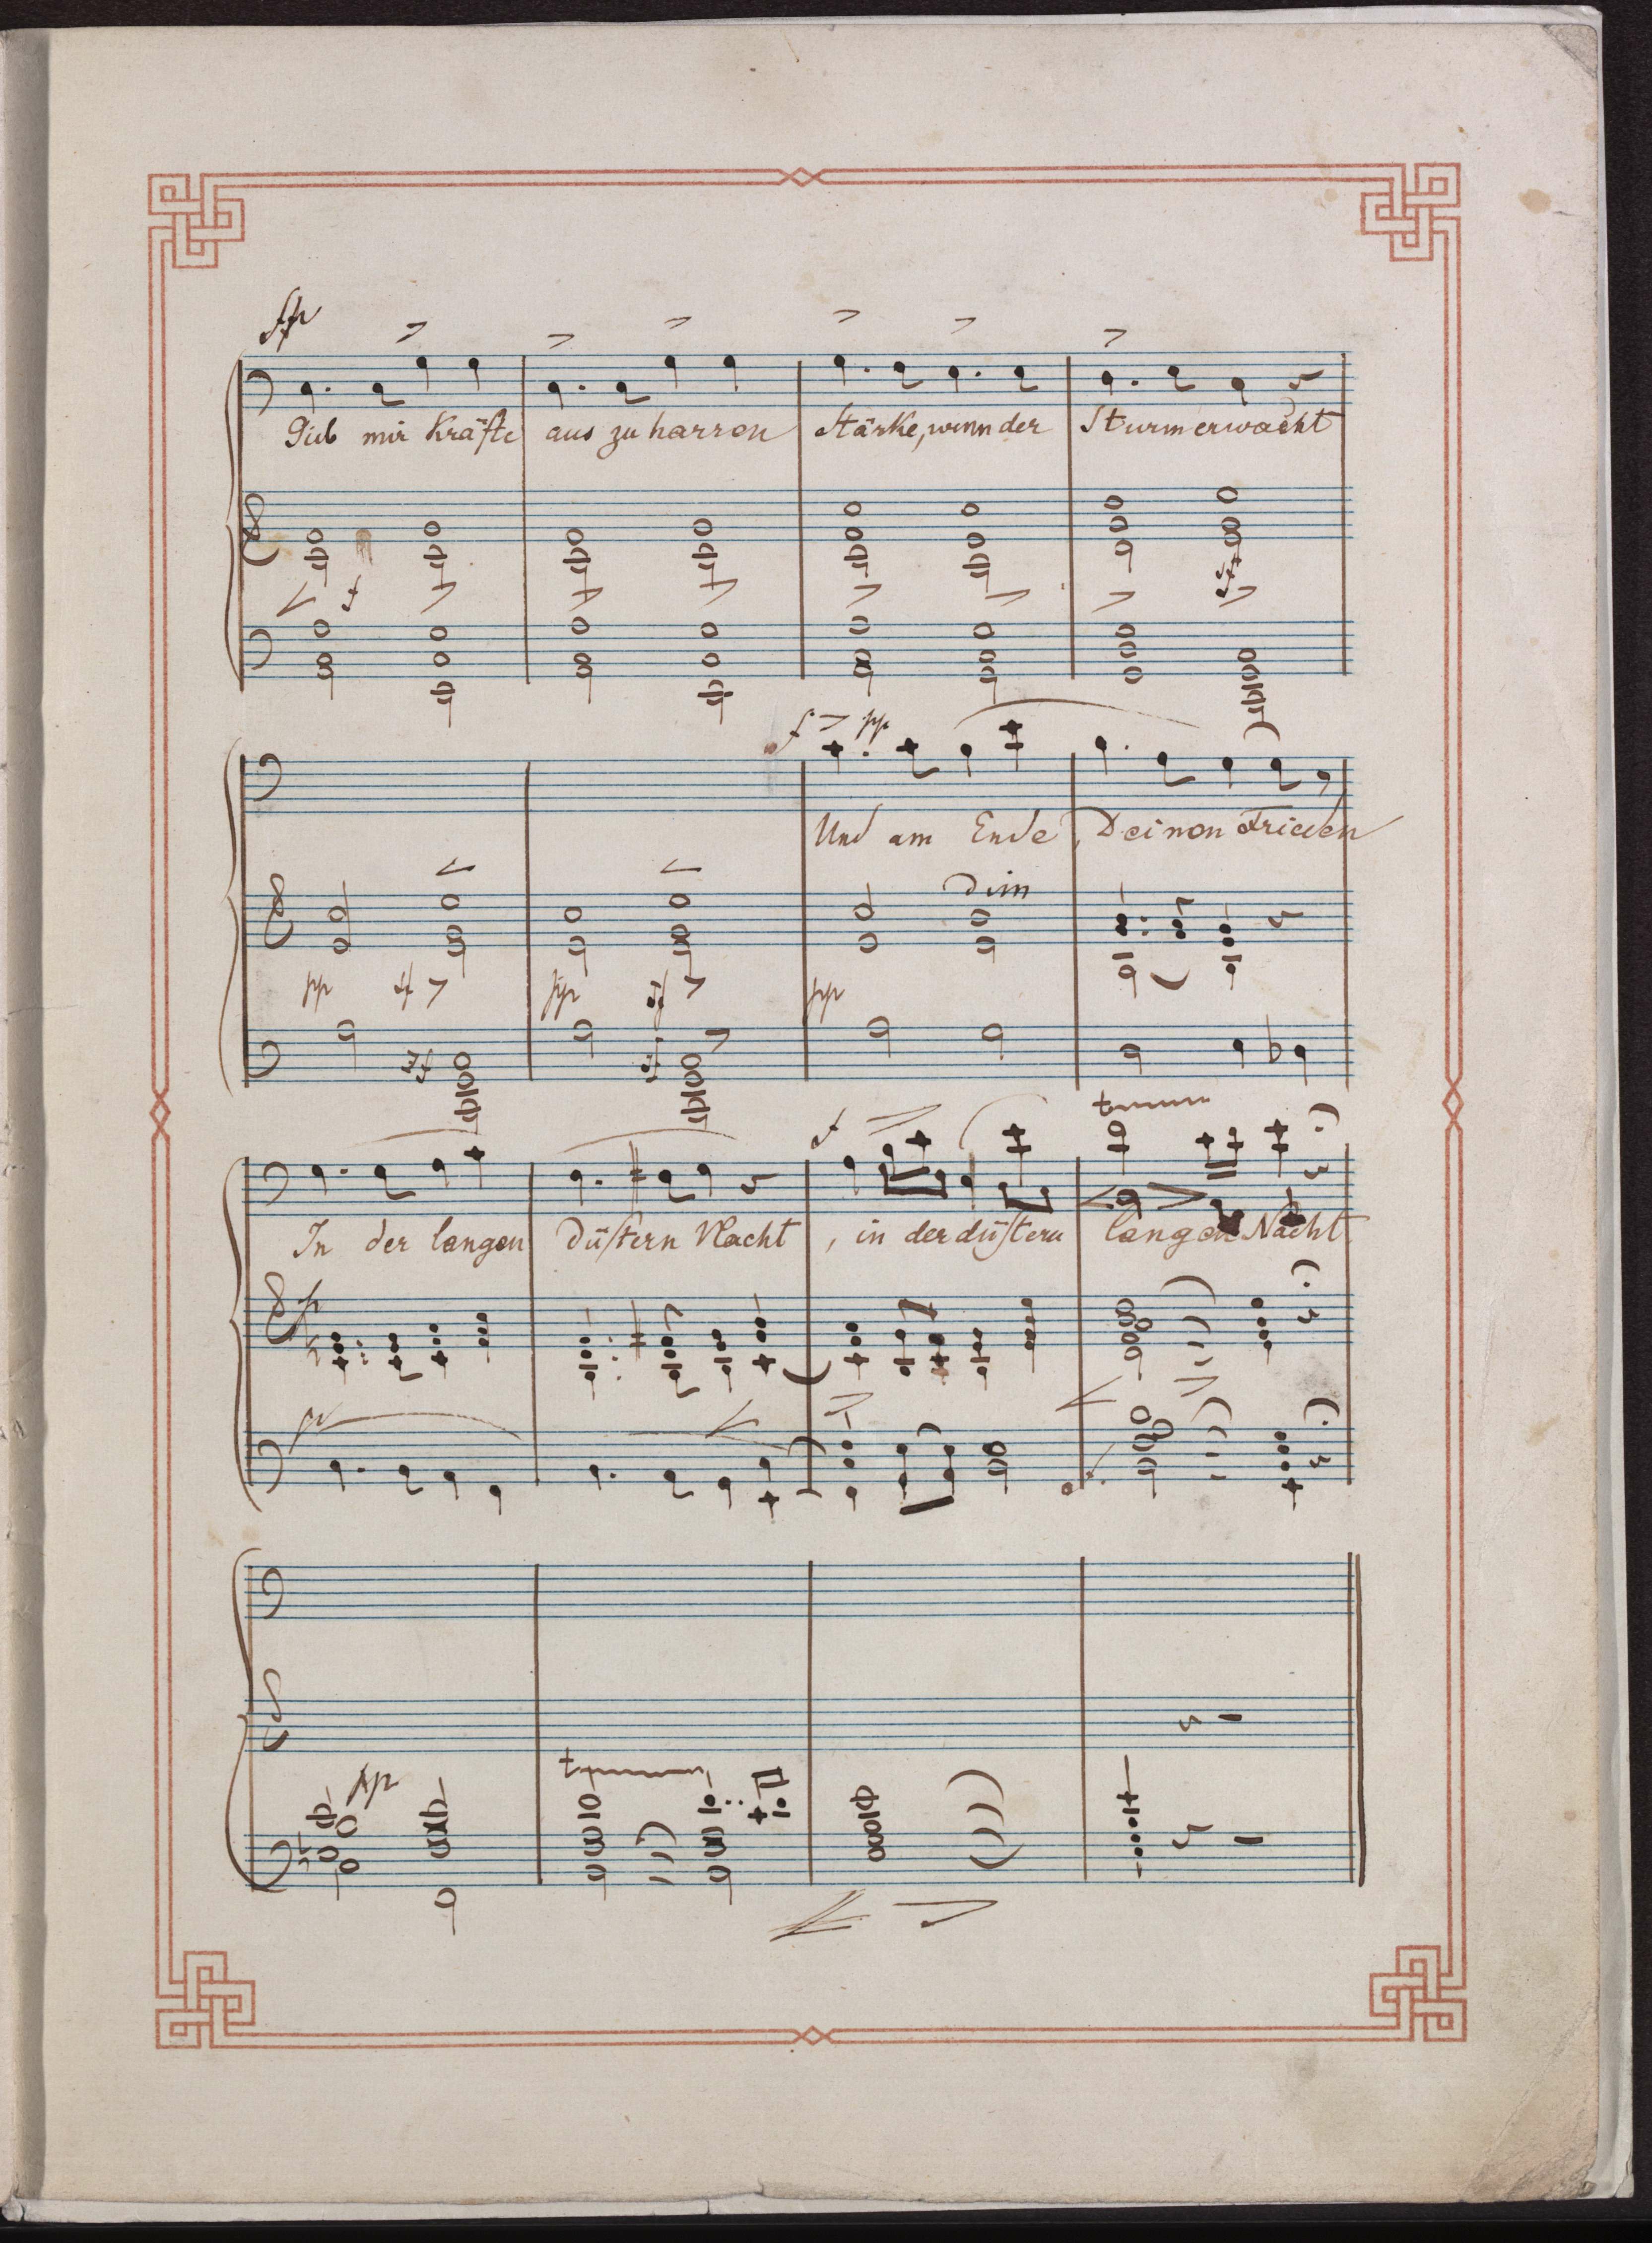 ffp
Gib mir Kräfte aus zu harren Stärke, wenn der Sturm erwacht
f
sf
f pp
Und am Ende, Deinen Frieden
dim
pp sf pp sf pp
sf sf
f
In der langen düstern Nacht, in der düstern langen Nacht
p
p
pp